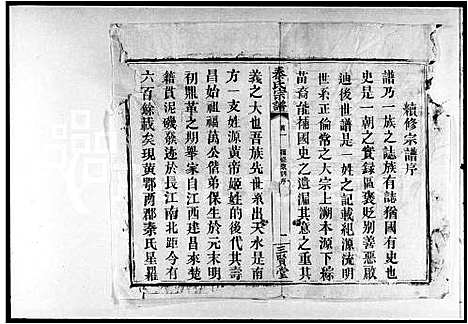 續修宗譜序
譜乃一族之誌族有誌猶國有史也
史是一朝之實録區褒貶别善惡啟
廸後世譜是一姓之記載紀源流明
世系正倫常之大宗上溯本源下綜
苗裔能補國史之遺漏其意之重其
秦氏宗譜
卷一
三賢堂
義之大也吾族先世系出天水是南
方一支姓源黄帝姬姓的後代其壽
昌始祖福萬公偕弟保生於元末明
初鼎革之際自江西建昌來楚
籍貫泥磯發迹於長江南北距今有
六百餘載矣現黄鄂兩郡秦氏星羅